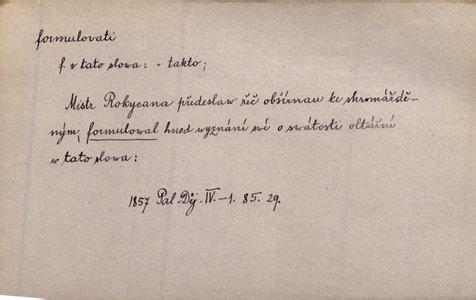 formulovati
f. v tato slowa: - takto;
Mistr Rokycana předeslaw řeč obšírnau ke shromáždě-
ným, formulowal hned wyznání své o swátosti oltářní
w tato slowa:
1857 Pal. Děj. IV.-1. 85. 29.